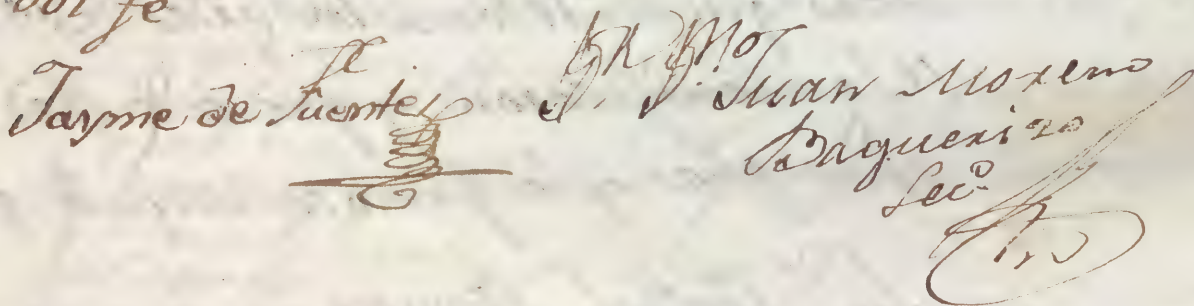 doi fe
Jayme de Fuentes
Juan Moreno
Baquerizo
Sec.º